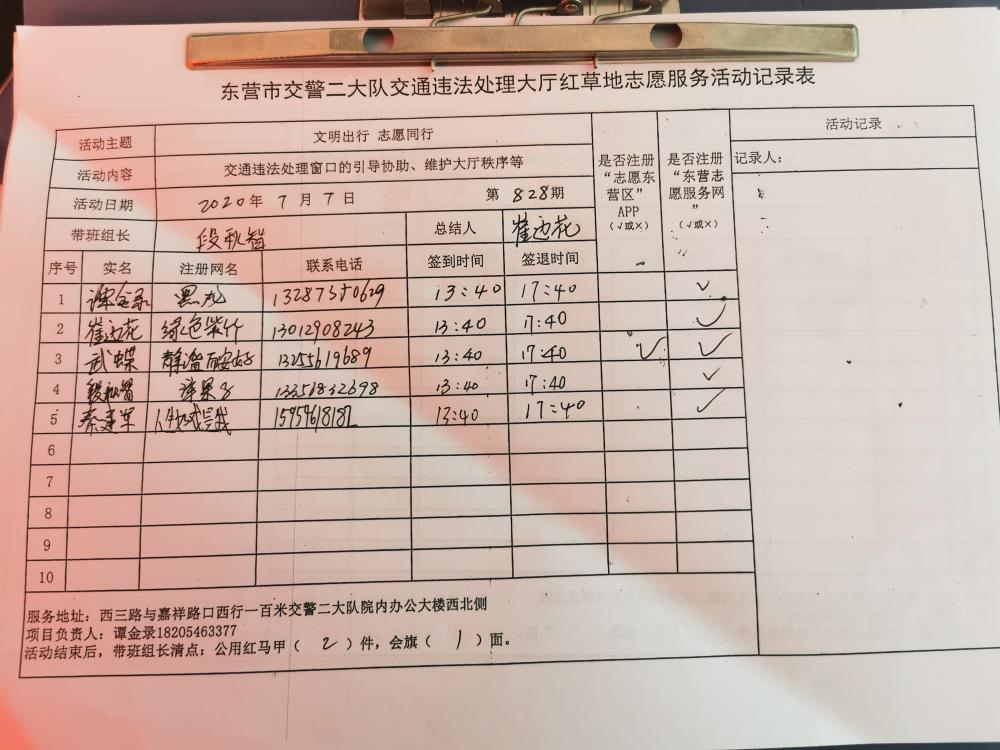 东营市交警二大队交通违法处理大厅红草地志愿服务活动记录表
活动主题 文明出行 志愿同行 是否注册“志愿东营区”APP（√或×） 是否注册“东营志愿服务网”（√或×） 活动记录
活动内容 交通违法处理窗口的引导协助、维护大厅秩序等 记录人：
活动日期 2020年 7月 7日 第 828期
带班组长 段秋智 总结人 崔边花
序号 实名 注册网名 联系电话 签到时间 签退时间
1 黑龙 13:40 17:40 ✓
2 崔边花 绿色紫竹 13012908243 13:40 17:40 ✓
3 武蝶 13255619689 13:40 17:40 ✓ ✓
4 段秋智 13:40 17:40 ✓
5 秦建军 13:40 17:40 ✓
6
7
8
9
10
服务地址：西三路与嘉祥路口西行一百米交警二大队院内办公大楼西北侧
项目负责人：谭金录18205463377
活动结束后，带班组长清点：公用红马甲（ 2 ）件，会旗（ 1 ）面。